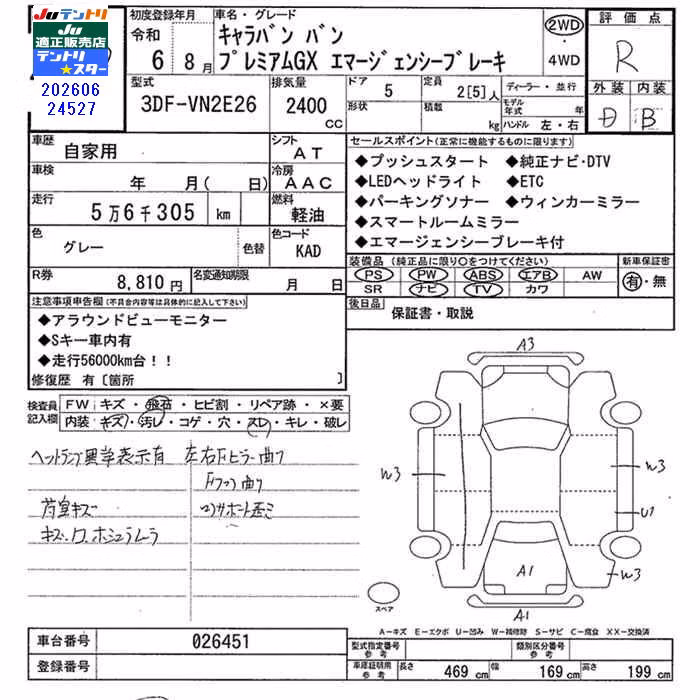 Juテントリ Juテントリ
適正販売店
テントリ
★スター
202606
24527
初度登録年月
令和
6 8月
車名・グレード
キャラバン バン
プレミアムGX エマージェンシーブレーキ
2WD
・
4WD
評価点
R
外装 内装
D B
型式
3DF-VN2E26
排気量
2400 cc
ドア 5
形状
定員 2[5]人
積数 kg
ディーラー・並行
モデル年式 年
ハンドル 左・右
車歴 自家用
シフト AT
車検 年 月( 日)
冷房 AAC
走行 5万6千305 km
燃料 軽油
色 グレー 色替
色コード KAD
R券 8,810円
名変通知期限 月 日
セールスポイント(正常に機能するものに限ります)
◆プッシュスタート ◆純正ナビ・DTV
◆LEDヘッドライト ◆ETC
◆パーキングソナー ◆ウィンカーミラー
◆スマートルームミラー
◆エマージェンシーブレーキ付
装備品(純正品に限り○をつけてください)
PS PW ABS エアB AW
SR ナビ TV カワ
新車保証書
有・無
後日品 保証書・取説
注意事項申告欄(不具合内容等は具体的に記入して下さい)
◆アラウンドビューモニター
◆Sキー車内有
◆走行56000km台!!
修復歴 有〔箇所 〕
検査員記入欄
FW キズ・飛石・ヒビ割・リペア跡・×要
内装 キズ・汚レ・コゲ・穴・スレ・キレ・破レ
左右Fピラー曲り
荷室キズ
A3
W3
W3
U1
W3
A1
A1
スペア
A-キズ E-エクボ U-凹み W-補修跡 S-サビ C-腐食 XX-交換済
車台番号 026451
登録番号
型式指定番号 参考
類別区分番号 参考
車庫証明用参考 長さ 469 cm 幅 169 cm 高さ 199 cm